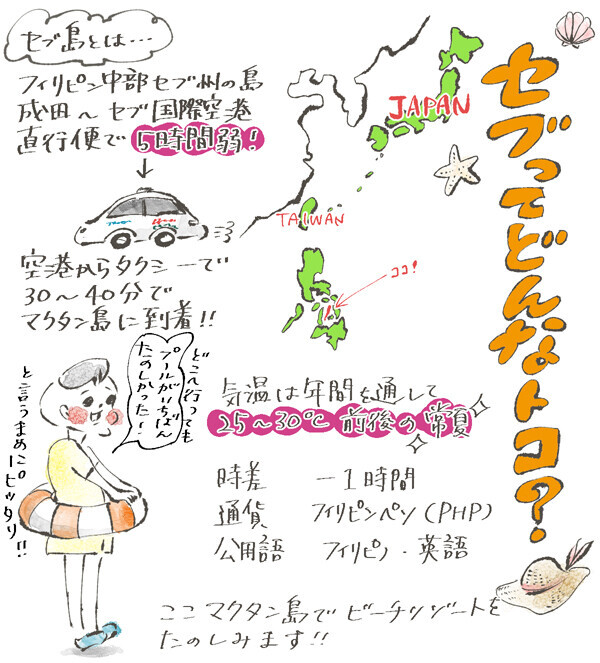 セブってどんなトコ?
セブ島とは…
フィリピン中部セブ州の島
成田〜セブ国際空港
直行便で5時間弱!
空港からタクシーで
30〜40分で
マクタン島に到着!!
JAPAN
TAIWAN
ココ!
どこ行っても
プールがいちばん
たのしかった!
と言うまめこ。
ピッタリ!!
気温は年間を通して
25〜30℃前後の常夏
時差 −1時間
通貨 フィリピンペソ(PHP)
公用語 フィリピノ・英語
ここマクタン島でビーチリゾートを
たのしみます!!